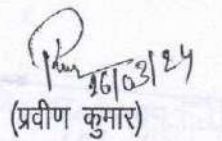 26/03/24
(प्रवीण कुमार)